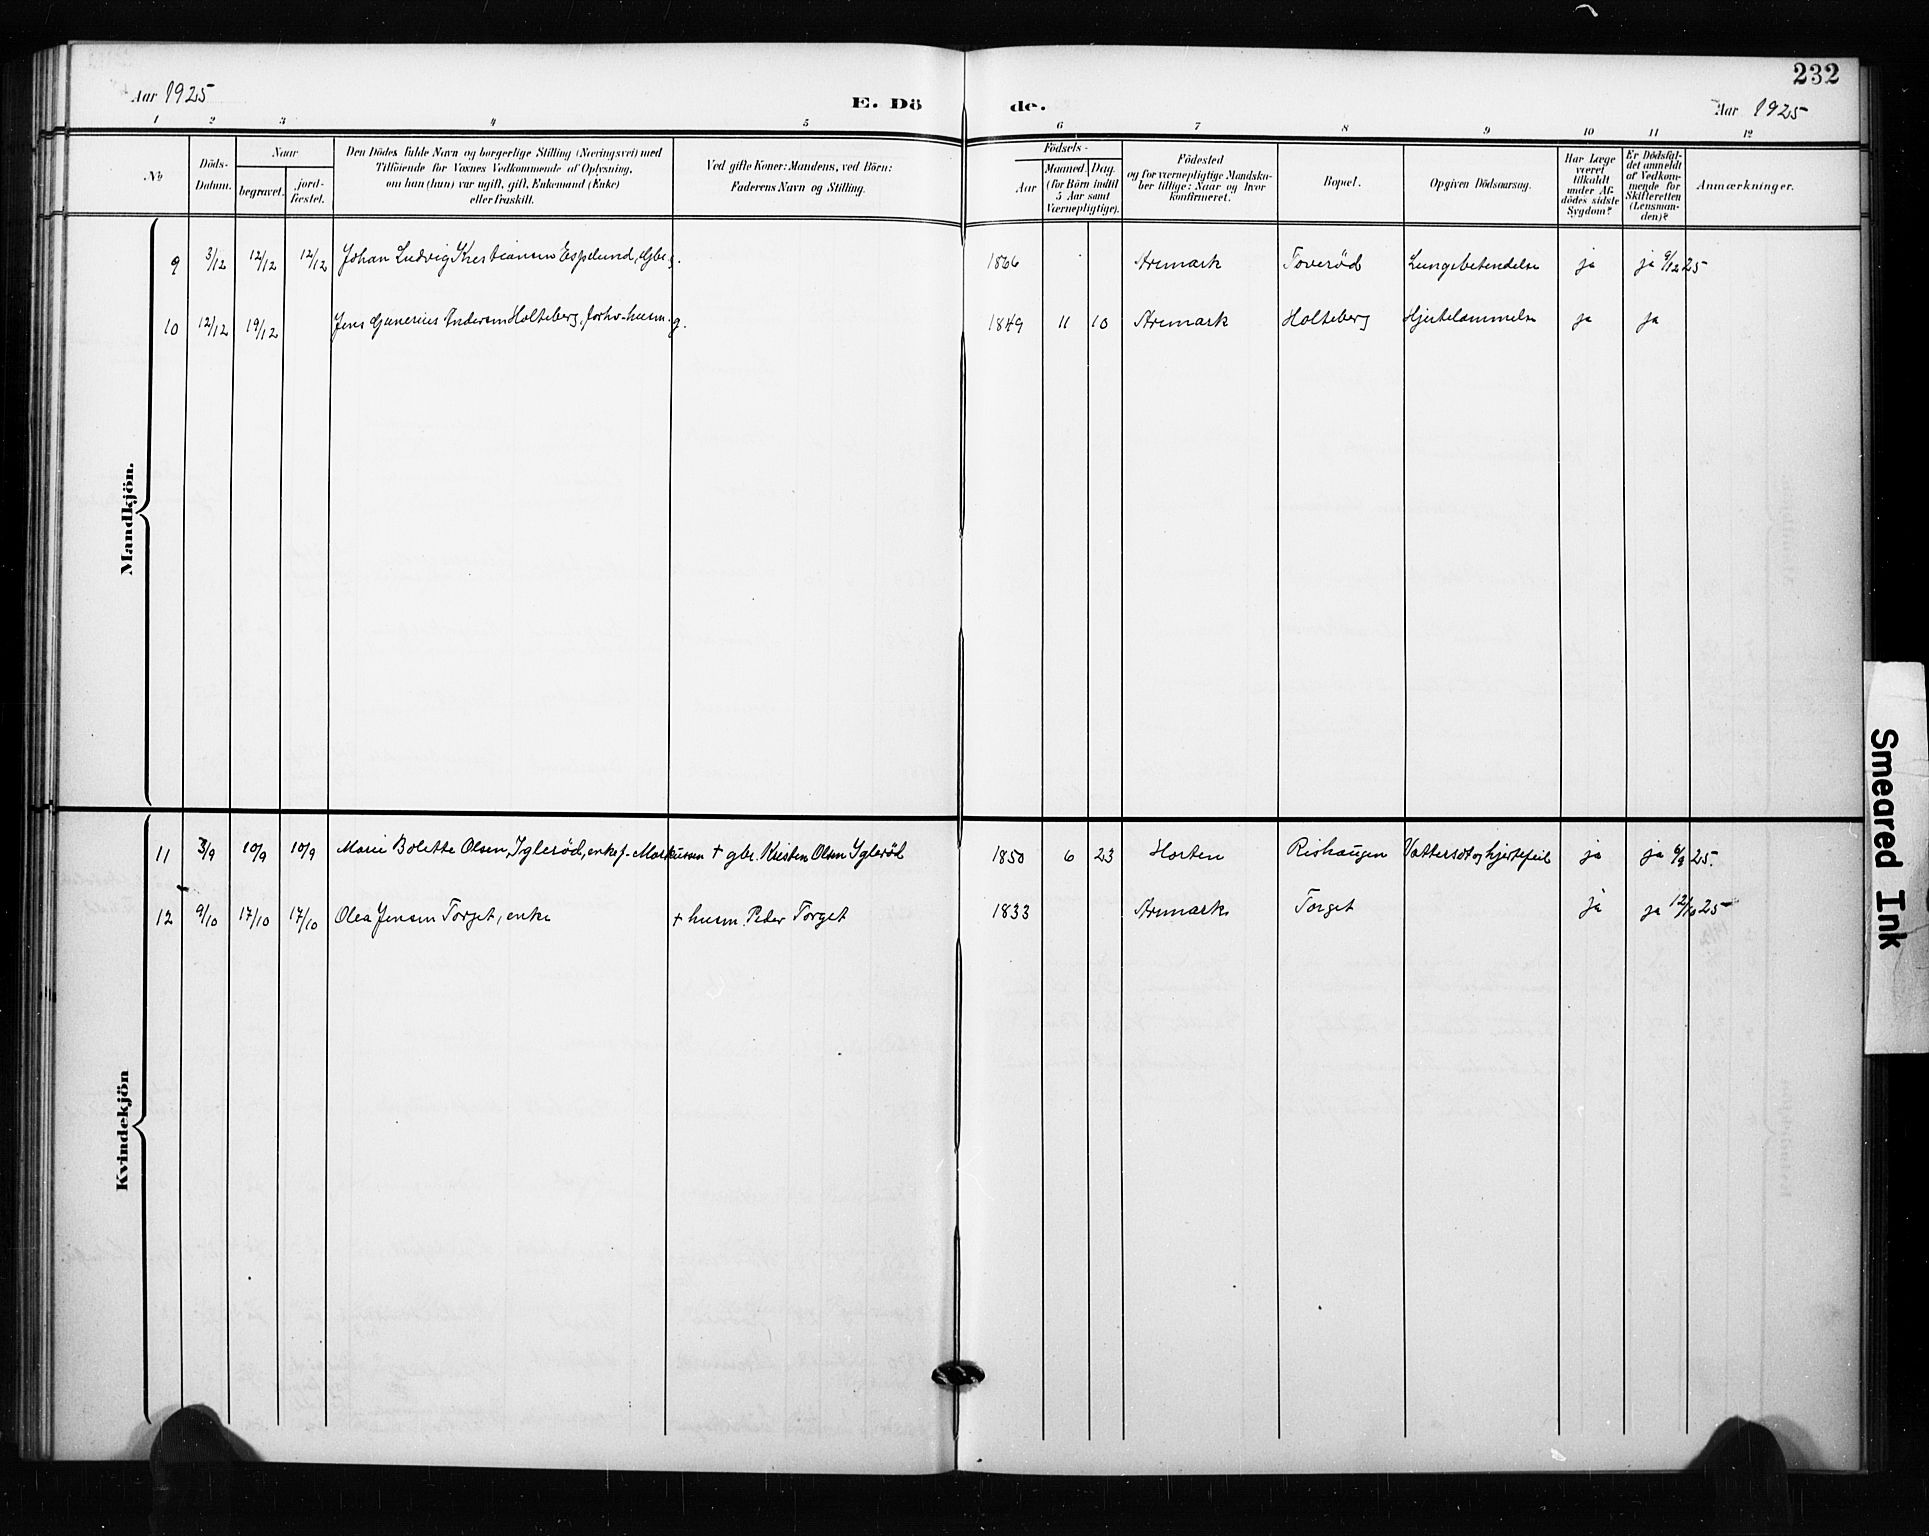 232
Aar 1925
E. Döde.
Aar 1925
1 2 3 4 5 6 7 8 9 10 11 12
No.
Döds-Datum.
Naar
begravet.
jord-fæstet.
Den Dödes fulde Navn og borgerlige Stilling (Næringsvei) med
Tilföiende for Voxnes Vedkommende af Oplysning,
om han (hun) var ugift, gift, Enkemand (Enke)
eller fraskilt.
Ved gifte Koner: Mandens, ved Börn:
Faderens Navn og Stilling.
Födsels-
Aar
Maaned. Dag.
(for Börn indtil
5 Aar samt
Værnepligtige).
Födested
og for værnepligtige Mandska-
ber tillige: Naar og hvor
konfirmeret.
Bopæl.
Opgiven Dödsaarsag.
Har Læge
været
tilkaldt
under Af-
dödes sidste
Sygdom?
Er Dödsfal-
det anmeldt
af Vedkom-
mende for
Skifteretten
(Lensman-
den)?
Anmærkninger.
Mandkjön.
9 3/12 12/12 12/12 Johan Ludvig Kristiansen Espelund, gbr. g. 1866 Aremark Toverød Lungebetendelse ja ja 9/12 25
10 12/12 19/12 Jens Gunerius Andersen Holteberg, forhv. husm. g. 1849 11 10 Aremark Holteberg Hjertelammelse ja ja
Kvindekjön
11 3/9 10/9 10/9 Marie Bolette Olsen, Iglerød, enke f. Markussen + gbr. Kristen Olsen Iglerød 1850 6 23 Horten Rishaugen Vattersot og hjertefeil ja ja 6/9 25.
12 9/10 17/10 17/10 Olea Jensen Torget, enke + husm. Peder Torget 1833 Aremark Torget ja ja 12/10 25
Smeared Ink